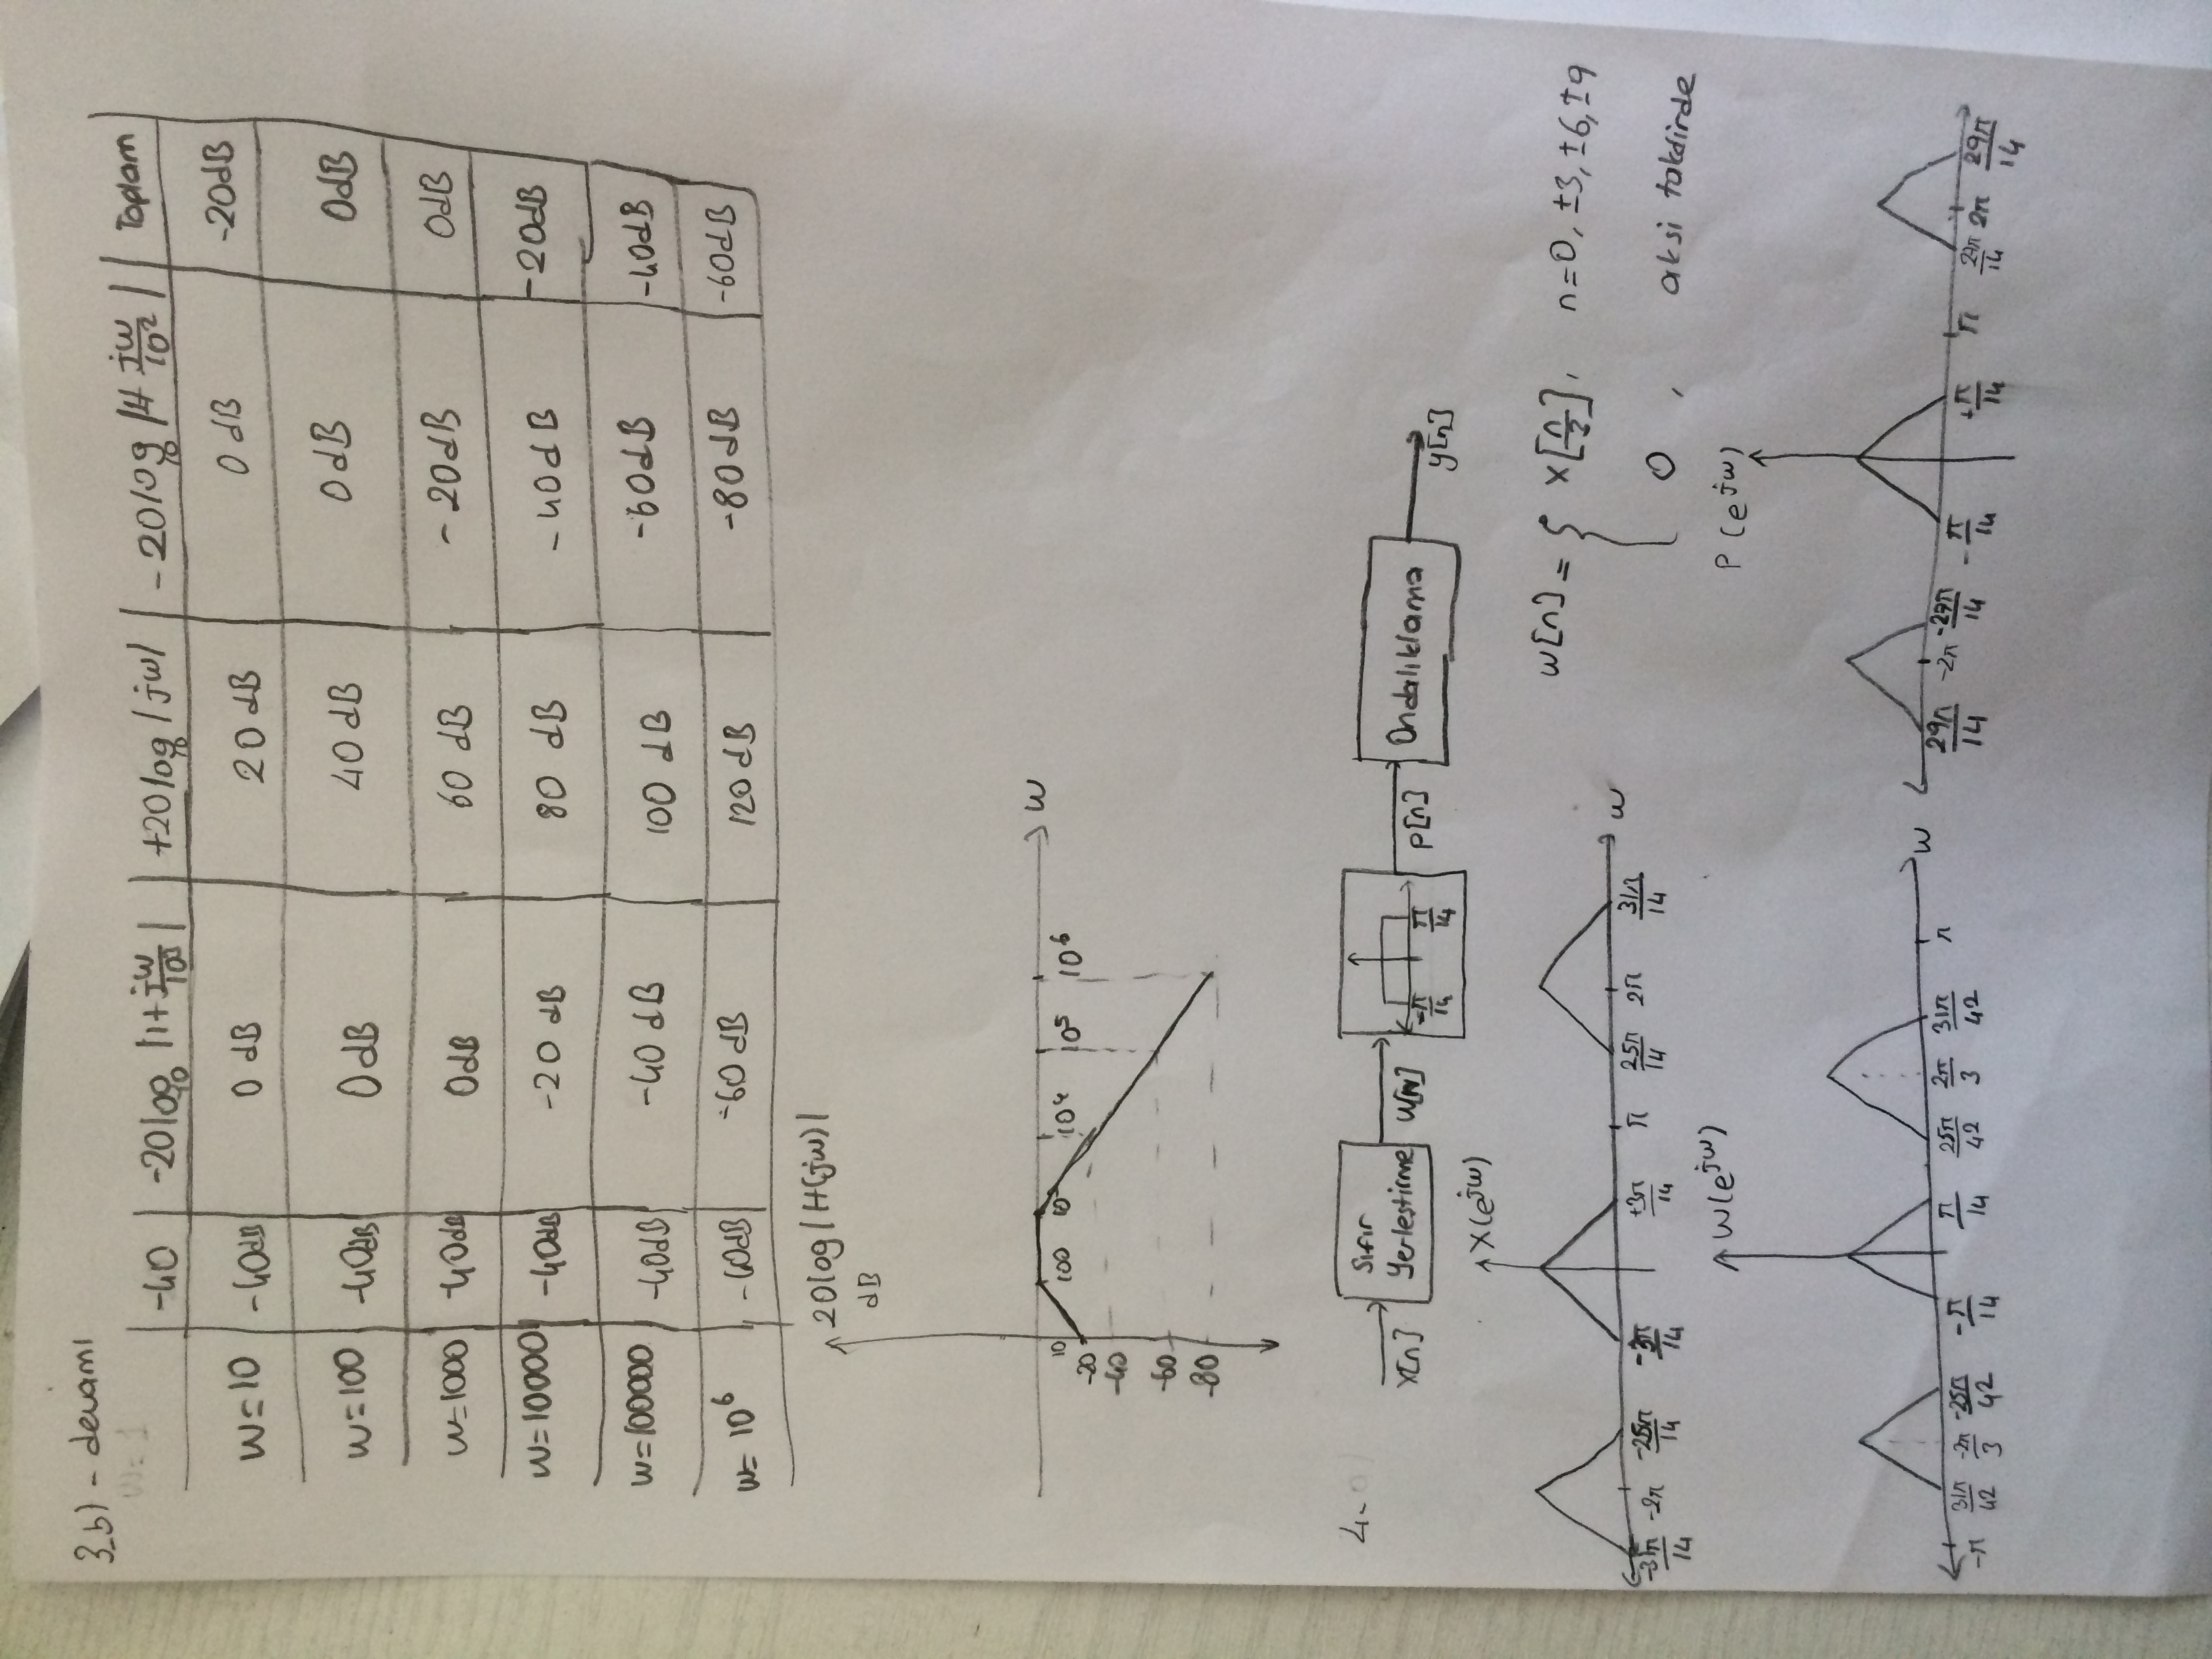 3_b) - devamı
w=1
-40 | -20log₁₀ |1+ jw/10³| | +20log₁₀ |jw| | -20log₁₀ |1+ jw/10²| | Toplam
w=10 | -40dB | 0 dB | 20 dB | 0 dB | -20dB
w=100 | -40dB | 0dB | 40 dB | 0dB | 0dB
w=1000 | -40dB | 0dB | 60 dB | -20dB | 0dB
w=10000 | -40dB | -20 dB | 80 dB | -40dB | -20dB
w=100000 | -40dB | -40 dB | 100 dB | -60dB | -40dB
w= 10⁶ | -60dB | -60 dB | 120 dB | -80dB | -60dB
20log|H(jw)|
dB
w
10 100 10³ 10⁴ 10⁵ 10⁶
-20
-40
-60
-80
4-a)
x[n] Sıfır Yerleştirme w[n] -π/14 π/14 p[n] Ondalıklama y[n]
X(e^jw)
-31π/14 -2π -25π/14 -3π/14 +3π/14 π 25π/14 2π 31π/14 w
w[n] = { x[n/3], n=0, ±3, ±6, ±9
0 , aksi takdirde
W(e^jw)
-π 31π/42 -2π/3 -25π/42 -π/14 π/14 25π/42 2π/3 31π/42 π w
P(e^jw)
29π/14 -2π -27π/14 -π/14 +π/14 π 27π/14 2π 29π/14